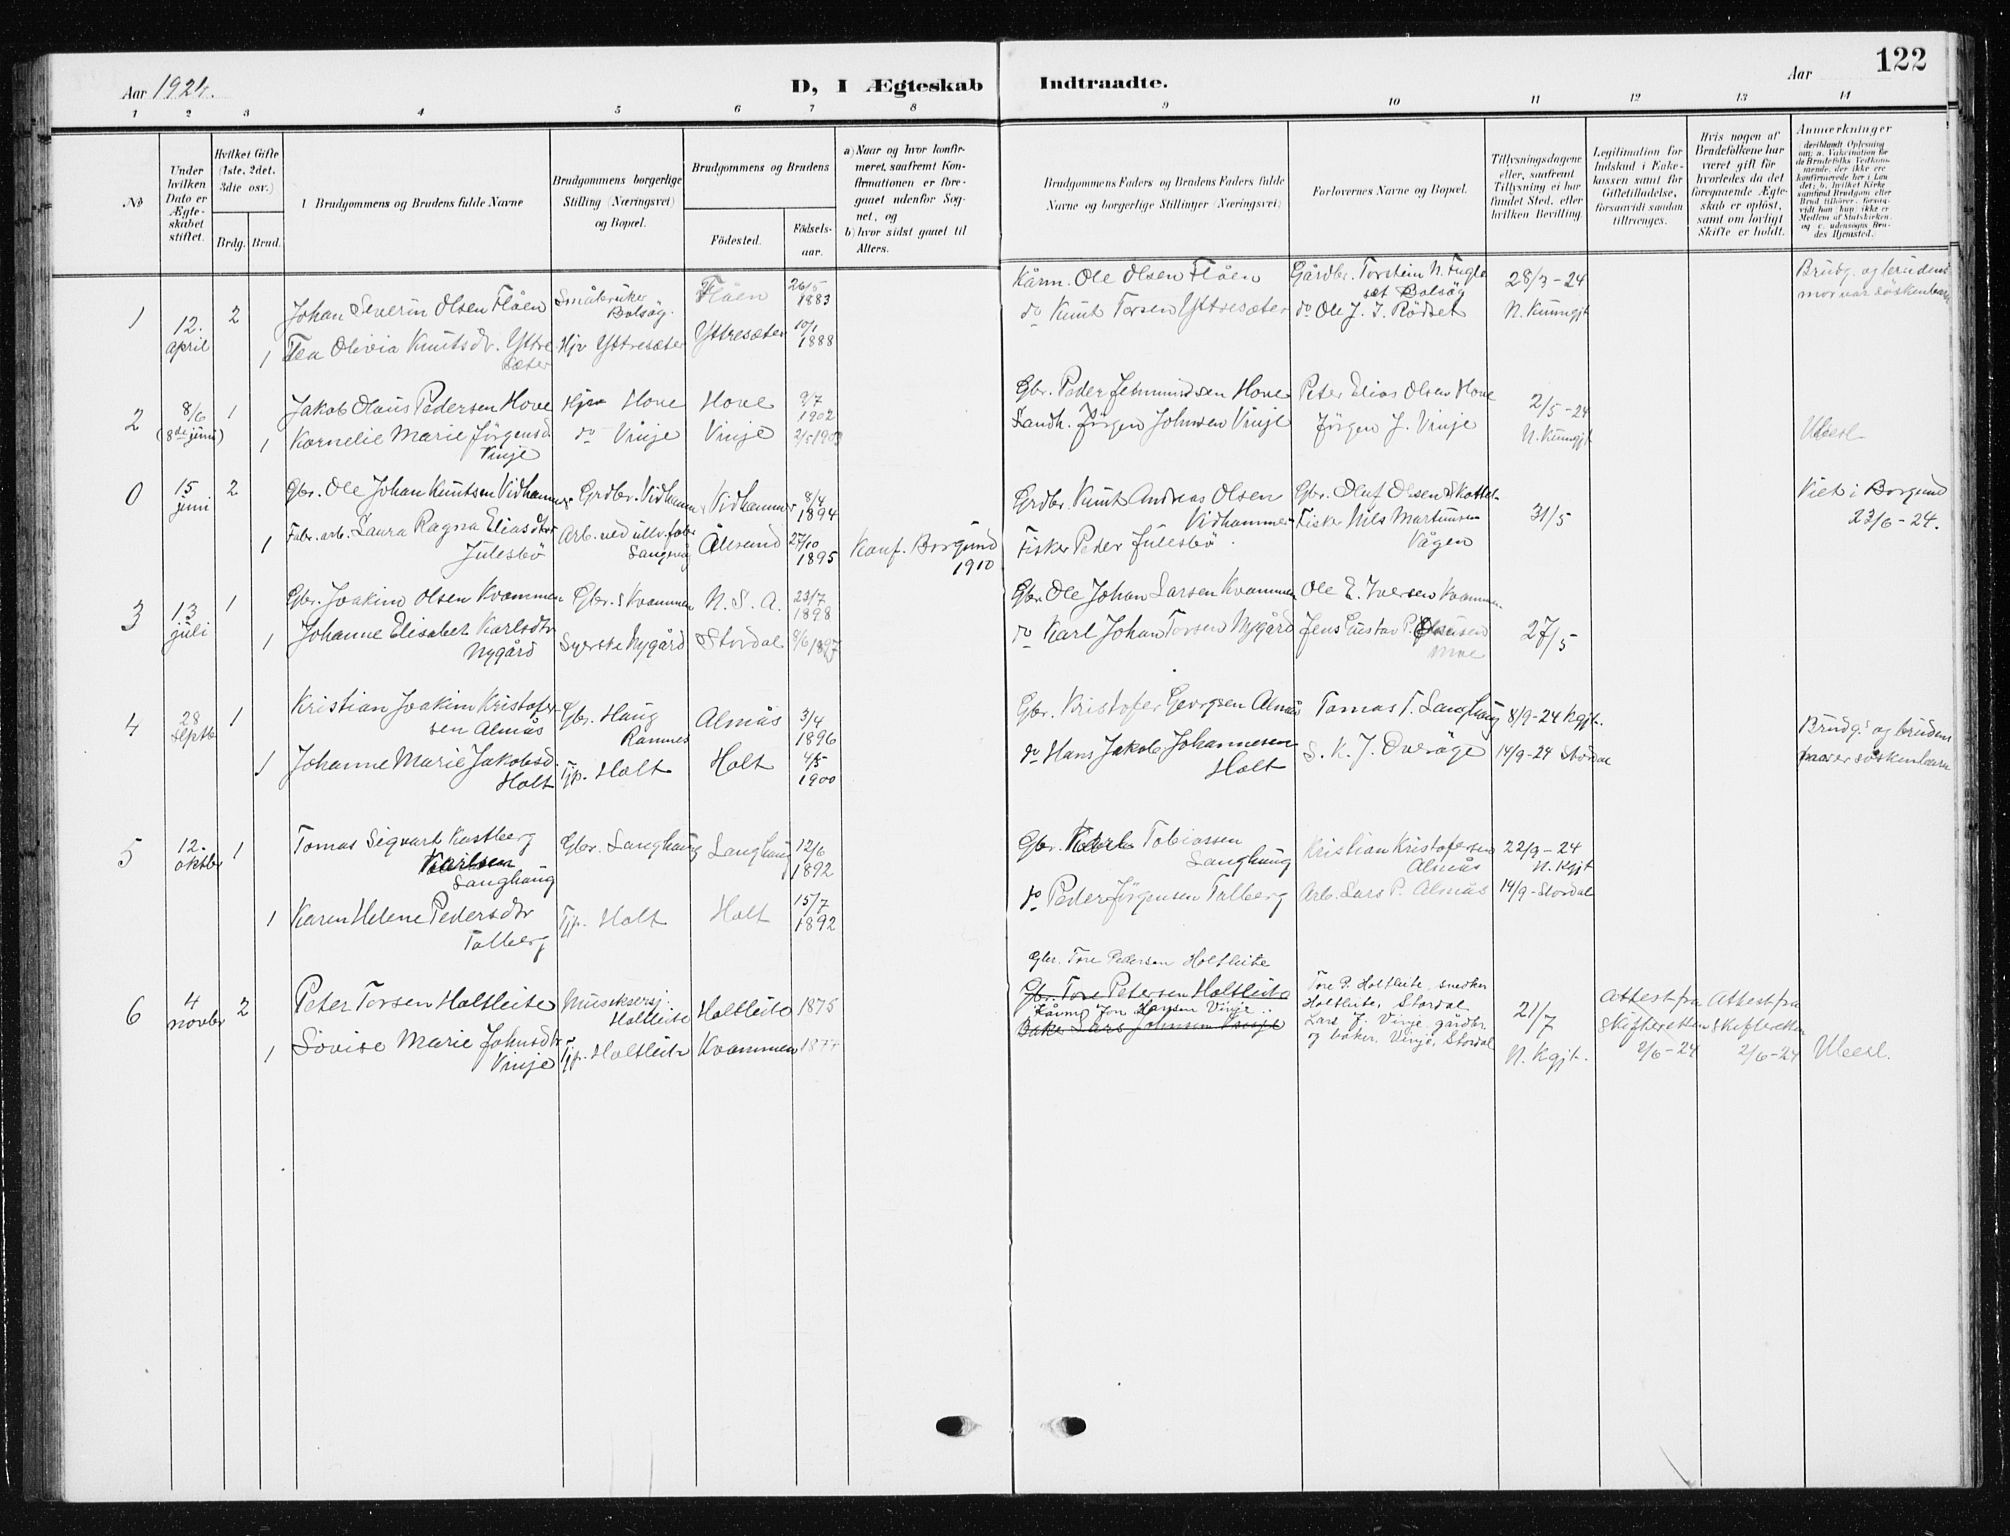 122
Aar 1924.
D, I Ægteskab Indtraadte.
Aar
1 2 3 4 5 6 7 8 9 10 11 12 13 14
No
Under hvilken Dato er Ægteskabet stiftet.
Hvilket Gifte (1ste, 2det, 3die osv.)
Brdg. Brud.
1 Brudgommens og Brudens fulde Navne
Brudgommens borgerlige Stilling (Næringsvei) og Bopæl.
Brudgommens og Brudens
Födested.
Födsels-aar.
a) Naar og hvor konfirmeret, saafremt Konfirmationen er foregaaet udenfor Sognet, og
b) hvor sidst gaaet til Alters.
Brudgommens Faders og Brudens Faders fulde Navne og borgerlige Stillinger (Næringsvei)
Forlovernes Navne og Bopæl.
Tillysningsdagene eller, saafremt Tillysning ei har fundet Sted, efter hvilken Bevilling
Legitimation for Indskud i Enkekassen samt for Giftetilladelse, forsaavidt saadan tiltrænges.
Hvis nogen af Brudefolkene har været gift før hvorledes da det foregaaende Ægteskab er oplöst, samt om lovligt Skifte er holdt.
Anmerkninger
1 12. april 2 Johan Severin Olsen Flåen Småbruker Bolsøy. Flåen 26/5 1883 Kårm. Ole Olsen Flåen Gårdbr. Torstein N. Fugle set Bolsøy 28/3-24 Brudg. og brudens
mor var søskenbarn
1 Tea Olivia Knutsdr. Ytre Sæter Hjv Yttresæter Yttresæter 10/1 1888 do Knut Torsen Yttresæter do Ole J. J. Rødset N. Kunngjt
2 8/6 (8de juni) 1 Jakob Olaus Pedersen Hove Hjv Hove Hove 9/7 1902 Gbr. Peder Jetmundsen Hove Peter Elias Olsen Hove 2/5-24
1 Kornelie Marie Jørgensd. Vinje do Vinje Vinje Landh. Jørgen Johnsen Vinje Jørgen J. Vinje N. Kunngjt
0 15 juni 2 Gbr. Ole Johan Knutsen Vidhammer Grdbr. Vidhammer Vidhammer 8/4 1894 Grdbr. Knut Andreas Olsen Vidhammer Gbr. Oluf Olsen 31/5 Viet i Borgund
23/6-24.
1 Fabr. arb. Laura Ragna Eliasdtr Julesbø Arb. ved ullv. fabr. Langevåg Ålesund 27/10 1895 Konf. Borgund 1910 Fisker Peder Julesbø. Fisker Nils Martinsen Vågen
3 13 juli 1 Gbr. Joakim Olsen Kvammen Gbr. s Kvammen N. S. A. 23/7 1898 Gbr. Ole Johan Larsen Kvammen Ole E. Iversen Kvammen
1 Johanne Elisabet Karlsdtr Nygård Syerske Nygård Stordal 8/6 1897 do Karl Johan Torsen Nygård Jens Gustav P. Moe 27/5
4 28 Septb 1 Kristian Joakim Kristofersen Almås Gbr. Haug Ramnes Almås 3/4 1896 Gbr. Kristofer Georgsen Almås Tomas T. Langhaug 8/9-24 Kgjt.
Brudg.s og brudens
søskenbarn
1 Johanne Marie Jakobsd. Holt Tjp. Holt Holt 4/5 1900 do Hans Jakob Johannesen Holt S. K. J. Overøye 14/9-24 Stordal
5 12. oktbr 1 Tomas Sigvart Kastberg Karlsen Langhaug Gbr. Langhaug Langhaug 12/6 1892 Gbr. Karl Tobiassen Langhaug Kristian Kristofersen Almås 22/9-24 N. Kgjt
1 Karen Helene Pedersdtr Tolberg Tjp. Holt Holt 15/7 1892 do Peder Jørgensen Tolberg Arb. Lars P. Almås 14/9-Stordal
Gbr. Tore Pedersen Holtleite
6 4 novbr 2 Peter Torsen Holtleite Musikersj. Holtleite Holtleite 1875 Gbr. Tore Petersen Holtleite Tore P. Holtleite, snedker Holtleite, Stordal 21/7 Attest fra Skifteretten 2/6-24 Attest fra Skifteretten 2/6-24
1 Lovise Marie Johnsdtr Vinje Tjp. Holtleite Kvammen 1877 Kårmd Jon Hansen Vinje Baker Lars Johnsen Vinje Lars J. Vinje gårdbr. og baker. Vinje, Stordal N. Kgjt.